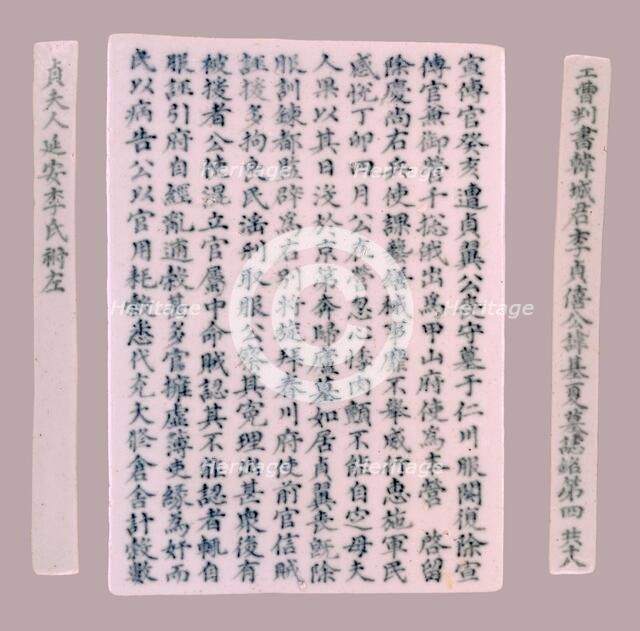 工曹判書韓城君李貞僖公諱基夏墓誌銘第四 共十八
宣傳官癸亥遭貞翼公喪守墓于仁川服闋復除宣
傳官兼御營千捴俄出爲甲山府使為本營 啓留
除慶尚右兵使課藝械靡不擧威行惠施軍民
感悅丁卯四月公在營忽心悸肉顫不能自定母夫
人果以其日沒於京第奔歸廬墓如居貞翼喪旣除
服訓鍊都監辟爲右別將旋拜春川府使前官信賊
誣援多拘良民濫刑取服公察其寃理出甚衆後有
被援者公使混立官屬中命賊認其不能認者輒自
服誣引府自經亂逋穀甚多官擁虛簿吏緣為奸而
民以病告公以官用耗穀悉代充大修倉舍計穀數
貞夫人延安李氏祔左
Heritage
Heritage
Heritage
Heritage
Heritage
Heritage